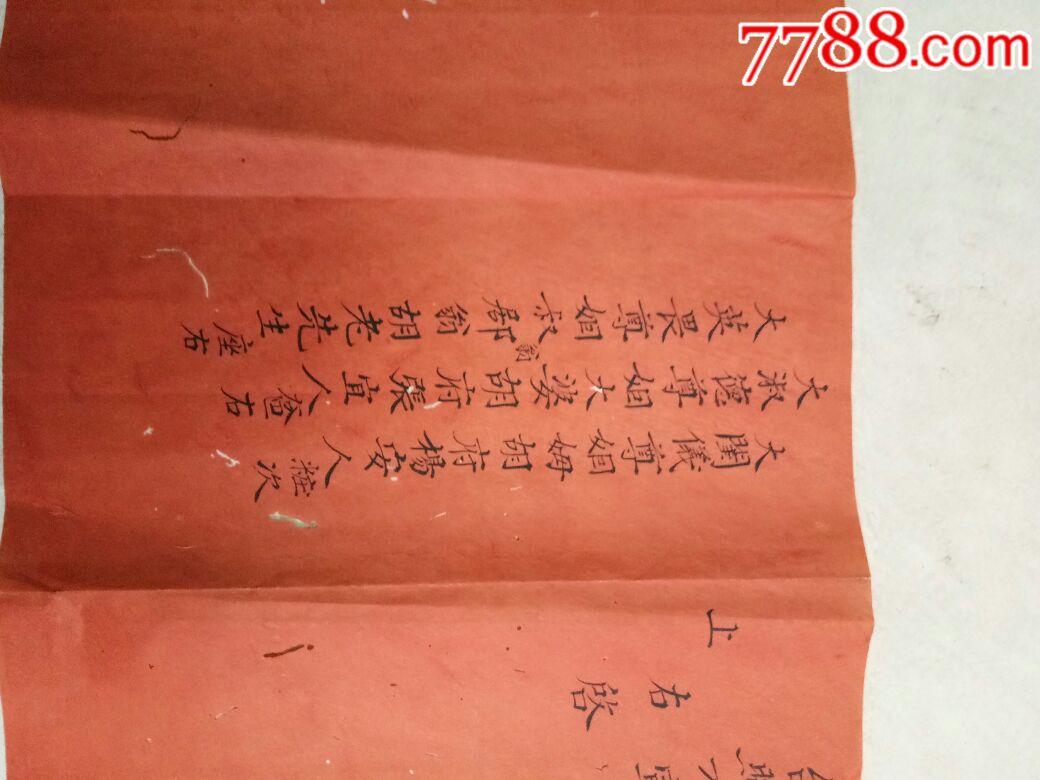 右啓
上
大閨儀尊姻姆胡府楊安人粧次
大淑德尊姻大婆胡府張宜人奩右
大英畏尊姻叔邵居翁翁胡老先生座右
7788.com